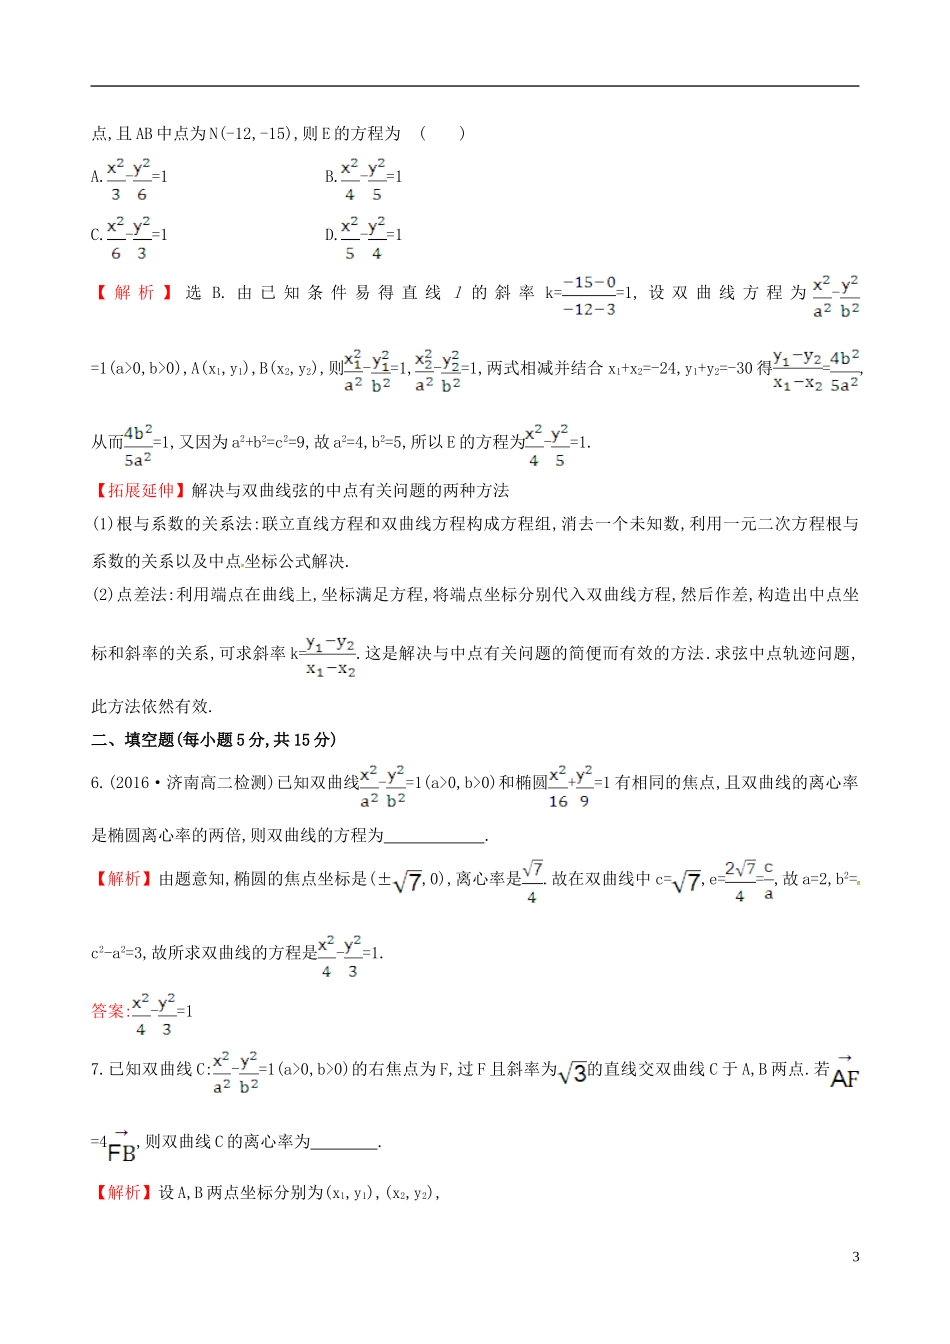 点,且 AB 中点为 N(-12,-15),则 E 的方程为 (  )
A.x²/3-y²/6=1 B.x²/4-y²/5=1
C.x²/6-y²/3=1 D.x²/5-y²/4=1
【解析】选 B.由已知条件易得直线 l 的斜率 k=(-15-0)/(-12-3)=1,设双曲线方程为x²/a²-y²/b²
=1(a>0,b>0),A(x₁,y₁),B(x₂,y₂),则x₁²/a²-y₁²/b²=1,x₂²/a²-y₂²/b²=1,两式相减并结合 x₁+x₂=-24,y₁+y₂=-30 得(y₁-y₂)/(x₁-x₂)=4b²/5a²,
从而4b²/5a²=1,又因为 a²+b²=c²=9,故 a²=4,b²=5,所以 E 的方程为x²/4-y²/5=1.
【拓展延伸】解决与双曲线弦的中点有关问题的两种方法
(1)根与系数的关系法:联立直线方程和双曲线方程构成方程组,消去一个未知数,利用一元二次方程根与
系数的关系以及中点坐标公式解决.
(2)点差法:利用端点在曲线上,坐标满足方程,将端点坐标分别代入双曲线方程,然后作差,构造出中点坐
标和斜率的关系,可求斜率 k=(y₁-y₂)/(x₁-x₂).这是解决与中点有关问题的简便而有效的方法.求弦中点轨迹问题,
此方法依然有效.
二、填空题(每小题 5 分,共 15 分)
6.(2016·济南高二检测)已知双曲线x²/a²-y²/b²=1(a>0,b>0)和椭圆x²/16+y²/9=1 有相同的焦点,且双曲线的离心率
是椭圆离心率的两倍,则双曲线的方程为____________.
【解析】由题意知,椭圆的焦点坐标是(±√7,0),离心率是√7/4.故在双曲线中 c=√7,e=2√7/4=c/a,故 a=2,b²=
c²-a²=3,故所求双曲线的方程是x²/4-y²/3=1.
答案:x²/4-y²/3=1
7.已知双曲线 C:x²/a²-y²/b²=1(a>0,b>0)的右焦点为 F,过 F 且斜率为√3的直线交双曲线 C 于 A,B 两点.若→AF
=4→FB,则双曲线 C 的离心率为________.
【解析】设 A,B 两点坐标分别为(x₁,y₁),(x₂,y₂),
3